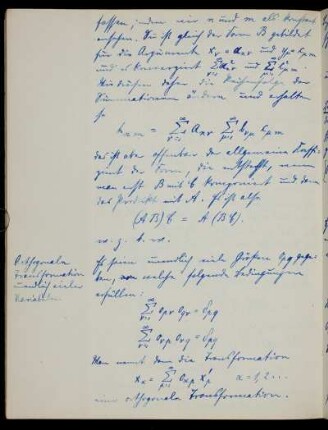 fassen, indem wir n und m als konstant
ansehen. Sie ist gleich der Form B gebildet
für die Argumente x_ν = a_{nν} und y_μ = c_{μm}
und
Wir dürfen daher die Reihenfolge der
Summationen ändern und erhalten
so
k_{nm} = Σ a_{nν} Σ b_{νμ} c_{μm}
das ist aber offenbar der allgemeine Koeffi-
zient der Form, die entsteht, wenn
man erst B mit C komponiert und dann
das Produkt mit A. Es ist also
(AB)C = A(BC).
w. z. b. w.
Orthogonale
Transformation
unendlich vieler
Variablen
Es seien unendlich viele Größen o_{pq} gege-
ben, welche folgende Bedingungen
erfüllen:
Σ o_{pν} o_{qν} = e_{pq}
Σ o_{νp} o_{νq} = e_{pq}
Man nennt dann die Transformation
x_α = Σ o_{αp} x'_p α = 1, 2 ...
eine orthogonale Transformation.